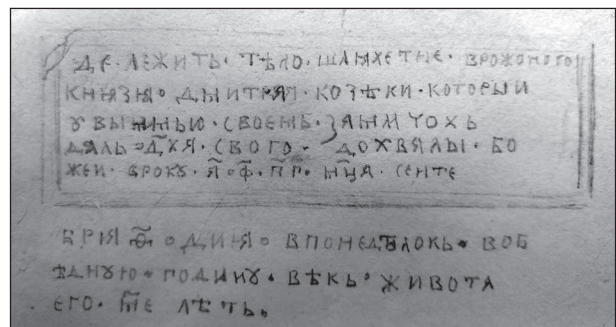 ДЕ·ЛЕЖИТЬ·ТѢЛО·ШЛЯХЕТНЕ·ВРОЖОНОГО
КНЯЗЮ·ДМИТРЯ·КОЗѢКИ·КОТОРЫИ
СВОЕМЬ·
ДАЛЬ·ДꙊХА·СВОГО·ДОХВАЛЫ·БО
ЖЕИ·ВРОКꙊ·҂А·Ф҃·П҃Г·МЦ҃А·СЕНТЕ
БРИЯ·Ѳ҃·ДНИЯ·ВПОНЕДѢЛОКЬ·ВОБ
ѢДНꙊЮ·ГОДИНꙊ·ВѢКЬ·ЖИВОТА
ЕГО·ЛѢТЬ,